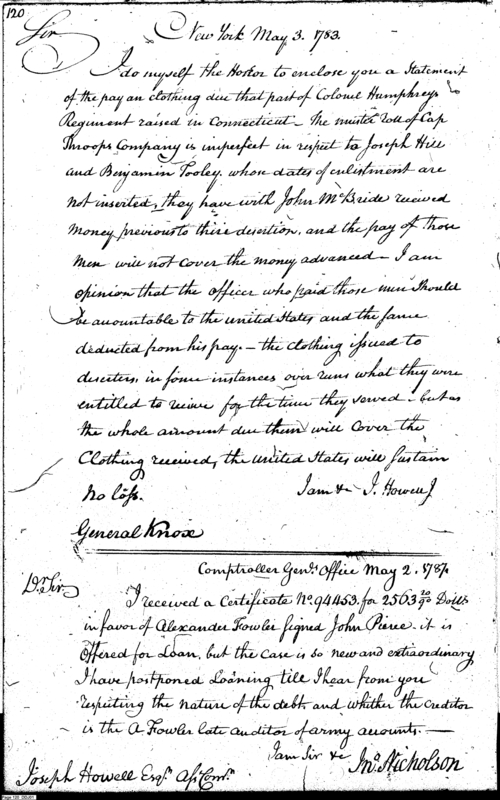 120
Sir
New York May 3. 1783.
I do myself the Honor to enclose you a Statement
of the pay an clothing due that part of Colonel Humphreys
Regiment raised in Connecticut – the muster roll of Cap
Throops Company is imperfect in respect to Joseph Hill
and Benjamin Tooley, whose dates of enlistment are
not inserted, they have with John McBride received
money previous to their desertion, and the pay of those
men will not cover the money advanced – I am
opinion that the officer who paid those men should
be accountable to the united States and the same
deducted from his pay. – the clothing issued to
deserters, in some instances over runs what they were
entitled to receive for the time they served – but as
the whole amount due them will cover the
Clothing received, the united States will sustain
no loss.
I am &c J. Howell J
General Knox
Comptroller Genls. Office May 2. 1787.
Dr. Sir.
I received a Certificate No. 94453. for 2563 20/90 Dolls
in favor of Alexander Fowler signed John Pierce. it is
offered for Loan, but the case is so new and extraordinary
I have postponed Loaning till I hear from you
respecting the nature of the debt, and whither the creditor
is the A. Fowler late auditor of army accounts. –
I am Sir &c
Jno. Nicholson
Joseph Howell Esqr. Ast. Comr.